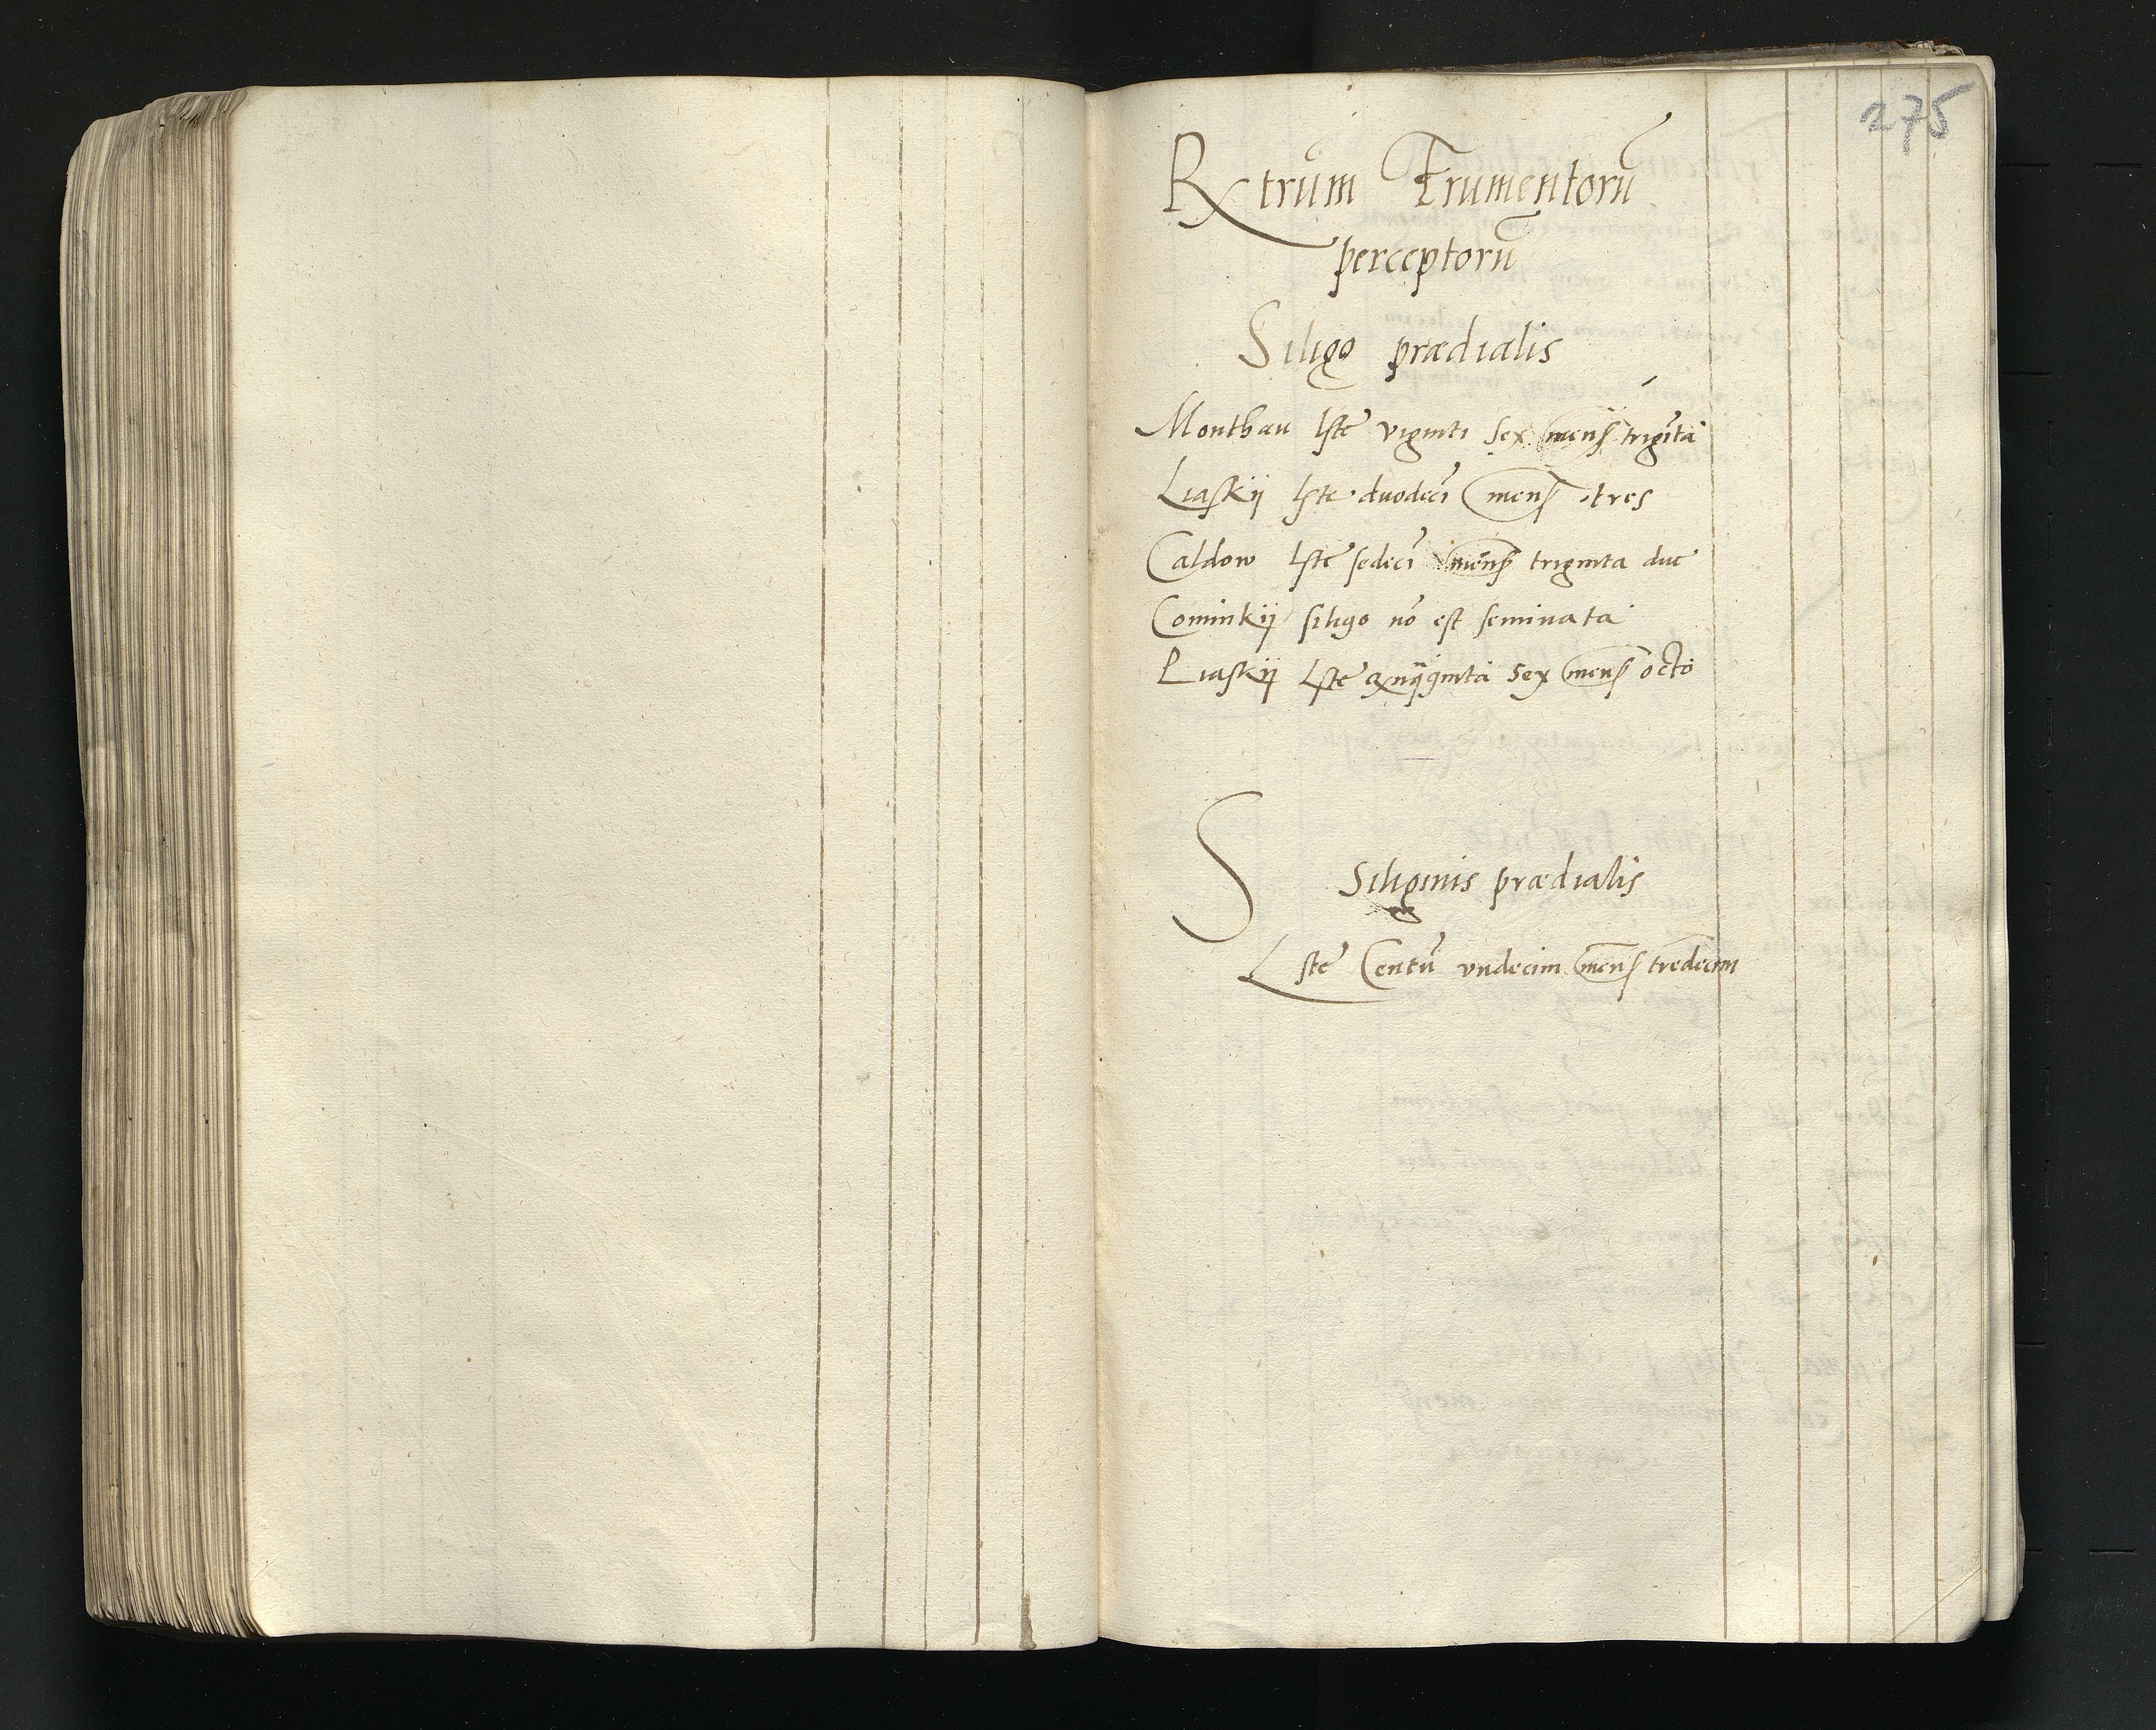 275
Rx trum Frumentorū
perceptorū
Siligo prædialis
Monthau lste viginti sex mens trigīta
Liaskij lste duodecī mens tres
Caldow lste sedecī mens triginta due
Cominkij siligo nō est seminata
Liaskij lste sex mens octo
S Siliginis prædialis
Lste Centū vndecim mens tredecim